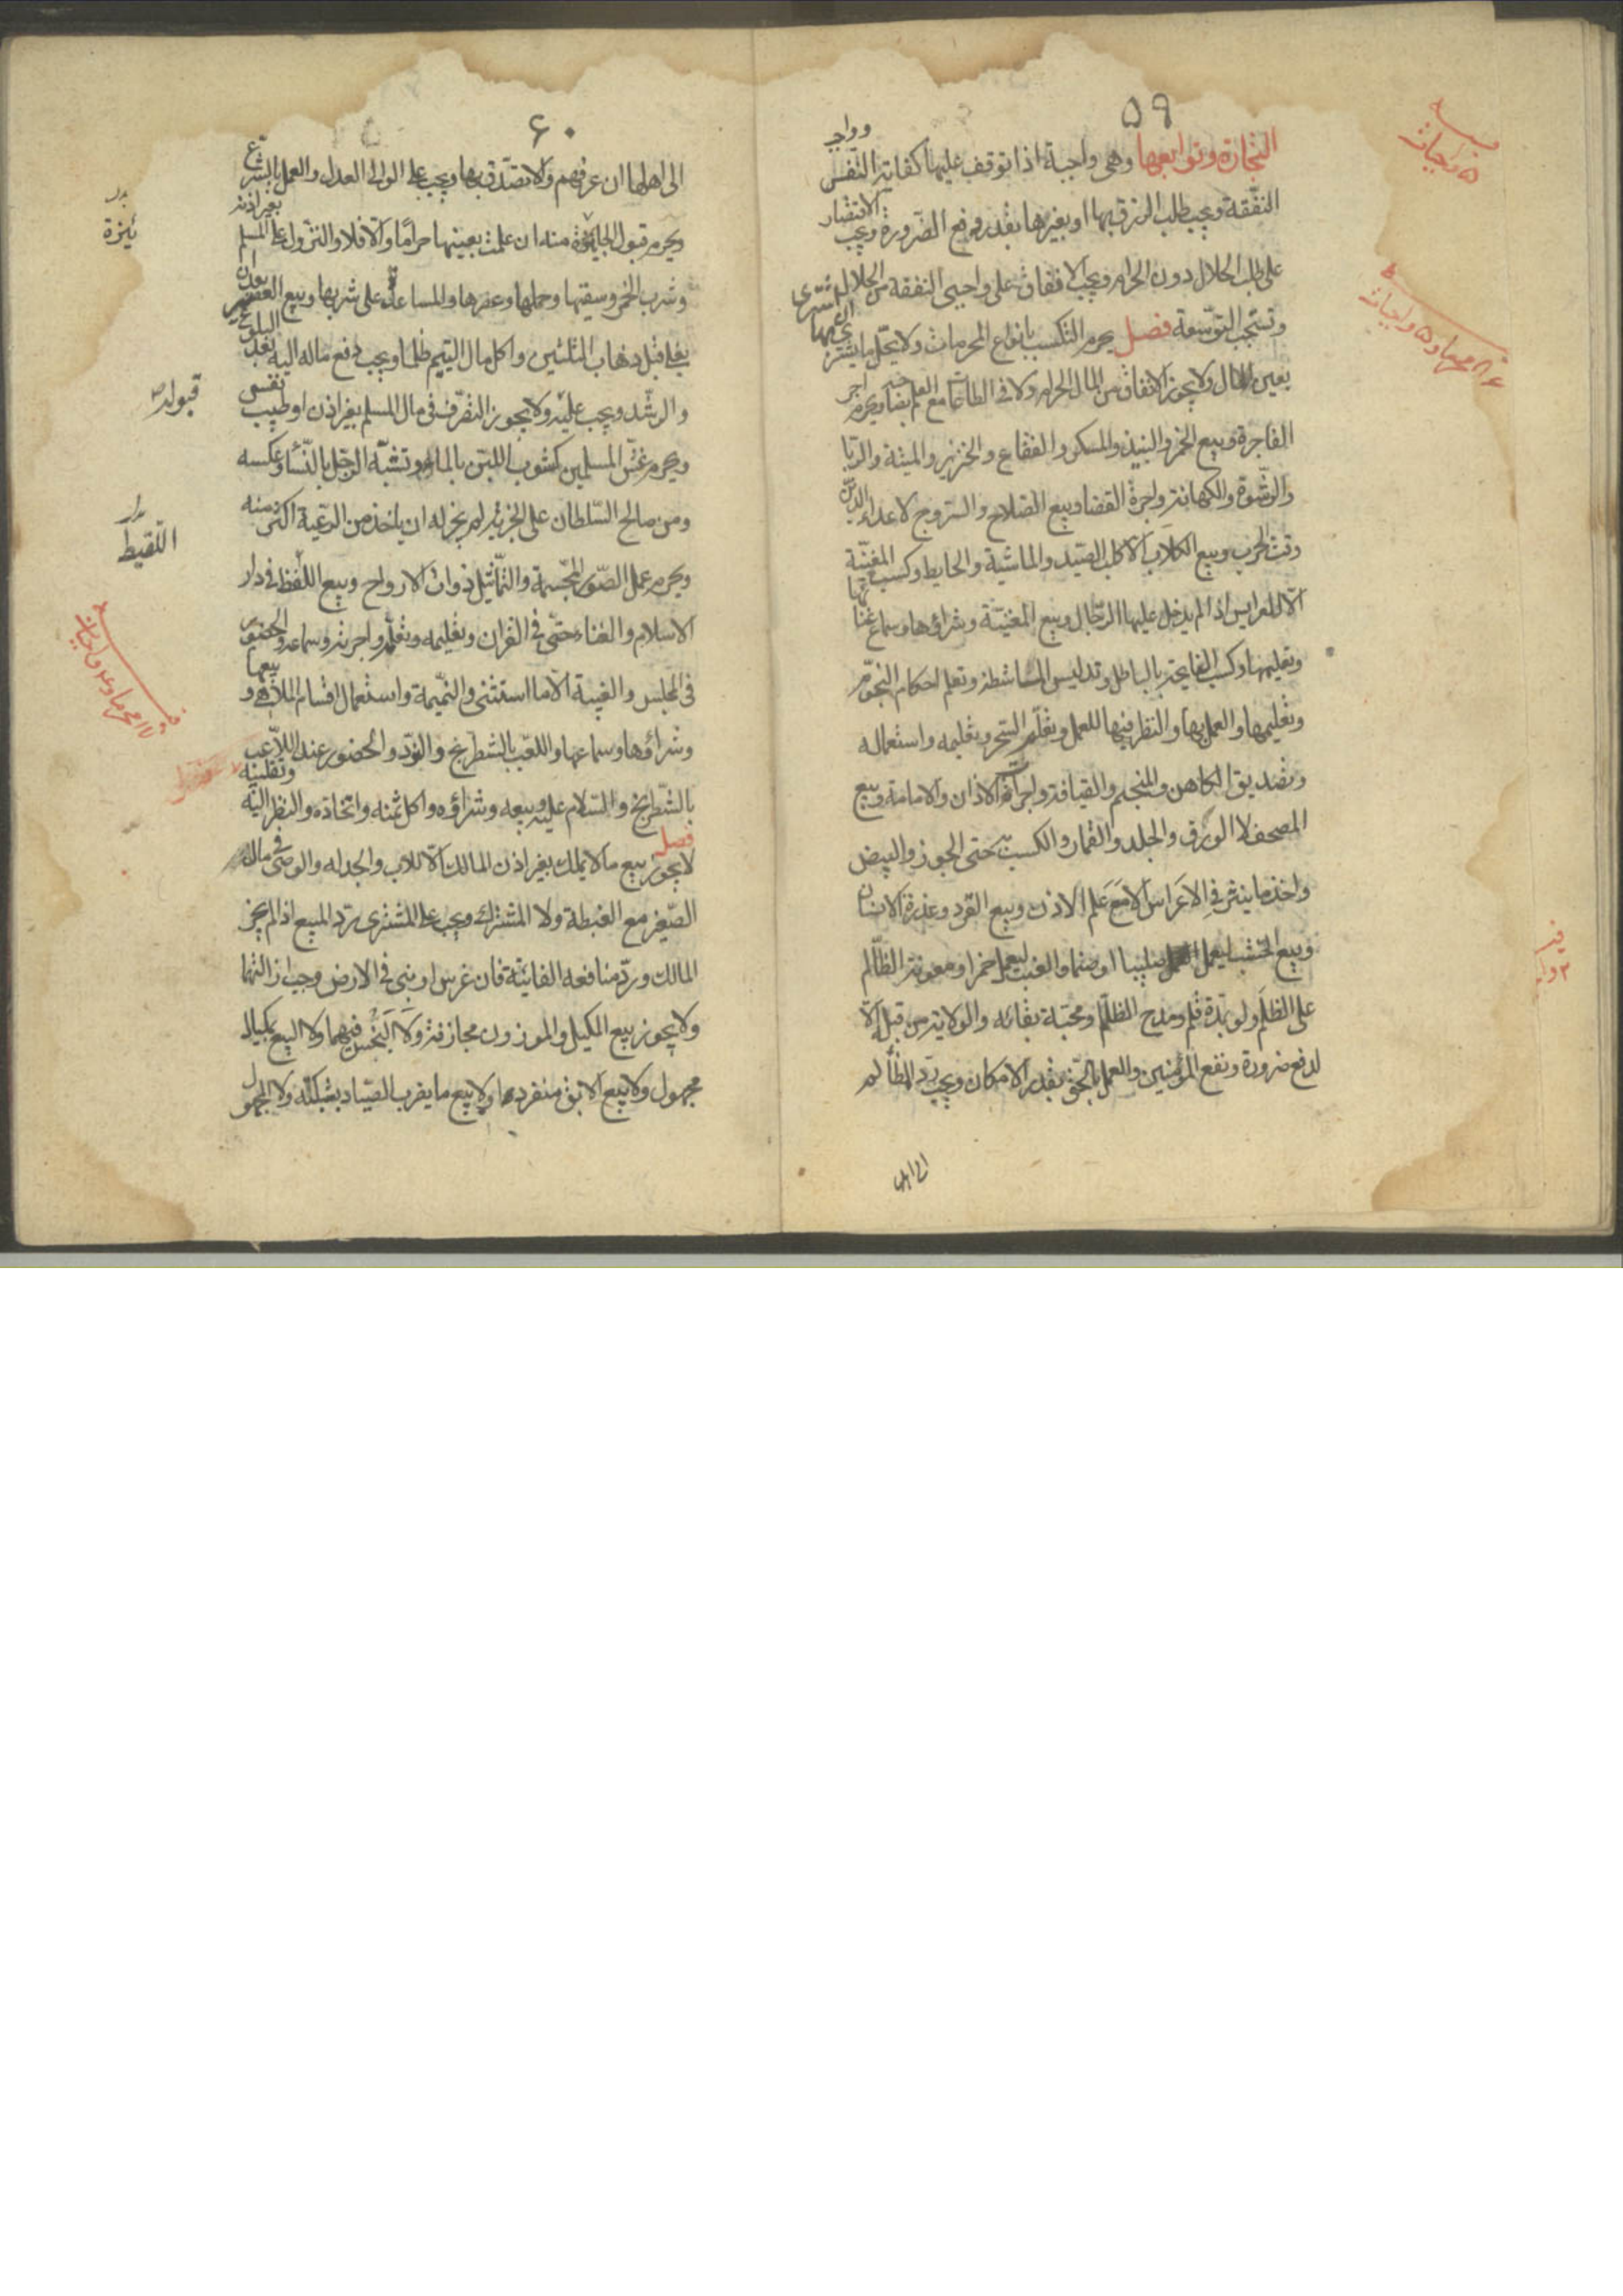 ٥٩
التجارة وتوابعها وهى واجبة اذا توقف عليها كفاية النفس وواجب
النفقة ويجب طلب الرزق بها او بغيرها بقدر دفع الضرورة ويجب الاقتصار
على طلب الحلال دون الحرام ويجب الانفاق على واجبى النفقة من الحلال
وتستحب التوسعة فصل يحرم التكسب بانواع المحرمات ولا يحل ما يشترى
بعين المال ولا يجوز الانفاق من المال الحرام ولا فى الطاعات مع العلم ويحرم اجر
الفاجرة وبيع الخمر والنبيذ والمسكر والفقاع والخنزير والميتة والربا
والرشوة والكهانة واجرة القضا وبيع السلاح والسروج لاعداء الدين
وقت الحرب وبيع الكلاب الا كلب الصيد والماشية والحايط وكسب المغنية
الا للعرايس اذا لم يدخل عليها الرجال وبيع المغنية وشراؤها وسماع غنائها
وتعليمها وكسب النايحة بالباطل وتدليس الماشطة وتعلم احكام النجوم
وتعليمها والعمل بها والنظر فيها للعمل وتعلم السحر وتعليمه واستعماله
وتصديق الكاهن والمنجم والقيافة واجرة الاذان والامامة وبيع
المصحف لا الورق والجلد والقمار والكسب به حتى الجوز والبيض
واخذ ما ينثر فى الاعراس الا مع علم الاذن وبيع القرد وعذرة الانسان
وبيع الخشب ليعمل صليبا او صنما والعنب ليعمل خمرا ومعونة الظالم
على الظلم ولو بمدة قلم ومدح الظالم ومحبة بقائه والولاية من قبله الا
لدفع ضرورة ونفع المؤمنين والعمل بالحق بقدر الامكان ويجب رد المظالم
الى اهلها
٦٠
الى اهلها ان عرفهم والا تصدق بها ويجب على الوالى العدل والعمل بالشرع
ويحرم قبول الجايزة منه ان علمت بعينها حراما والا فلا والنزول على المسلم بغير اذنه
وشرب الخمر وسقيها وحملها وعصرها والمساعدة على شربها وبيع العصير بعد ان
يغلى قبل ذهاب الثلثين واكل مال اليتيم ظلما ويجب دفع ماله اليه بعد البلوغ
والرشد ويجب عليه ولا يجوز التصرف فى مال المسلم بغير اذن او طيب نفس
ويحرم غش المسلمين كشوب اللبن بالماء وتشبه الرجل بالنساء وعكسه
ومن صالح السلطان على الجزية لم يجز له ان ياخذ من الرعية اكثر منه
ويحرم عمل الصور المجسمة والتماثيل ذوات الارواح وبيع اللفظ فى دار
الاسلام والغناء حتى فى القران وتعليمه وتعلمه واجرته وسماعه والحضور
فى المجلس والغيبة الا ما استثنى والنميمة واستعمال اقسام الملاهى وبيعها
وشراؤها وسماعها واللعب بالشطرنج والنرد والحضور عند اللاعب
بالشطرنج والسلام عليه وبيعه وشراؤه واكل ثمنه واتخاذه والنظر اليه وتقليبه
فصل لا يجوز بيع ما لا يملك بغير اذن المالك الا للاب والجد له والوصى فى مال
الصغير مع الغبطة ولا المشترك ويجب على المشترى رد المبيع اذا لم يجز
المالك ورد منافعه الفايتة فان غرس او بنى فى الارض وجب ازالتها
ولا يجوز بيع المكيل والموزون مجازفة ولا البخس فيهما ولا البيع بمكيال
مجهول ولا بيع الابق منفردا ولا بيع ما يضرب الصياد بشبكته ولا المجهول
ئزة
قبوله
اللقيط